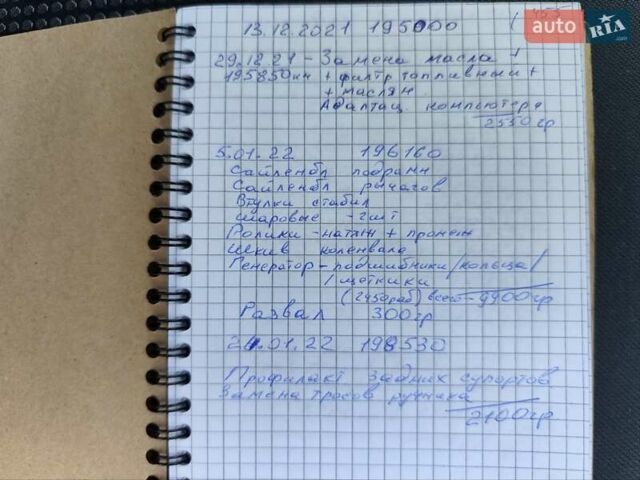 13.12.2021 195000
auto RIA.com
29.12.21 - Замена масла +
195850км + фильтр топливный +
+ маслян
Адаптац. компьютера
2550гр
5.01.22 196160
Сайленбл подрамн
Сайленбл рычагов
Втулки стабил
шаровые - 2шт
Ролики - натяж + промеж
Шкив коленвала
Генератор - подшибники/кольца/
/щотники
(2450раб) всего - 9900гр
Развал 300гр
24.01.22 198530
Профилакт задних супортов
Замена тросов ручника
2100гр